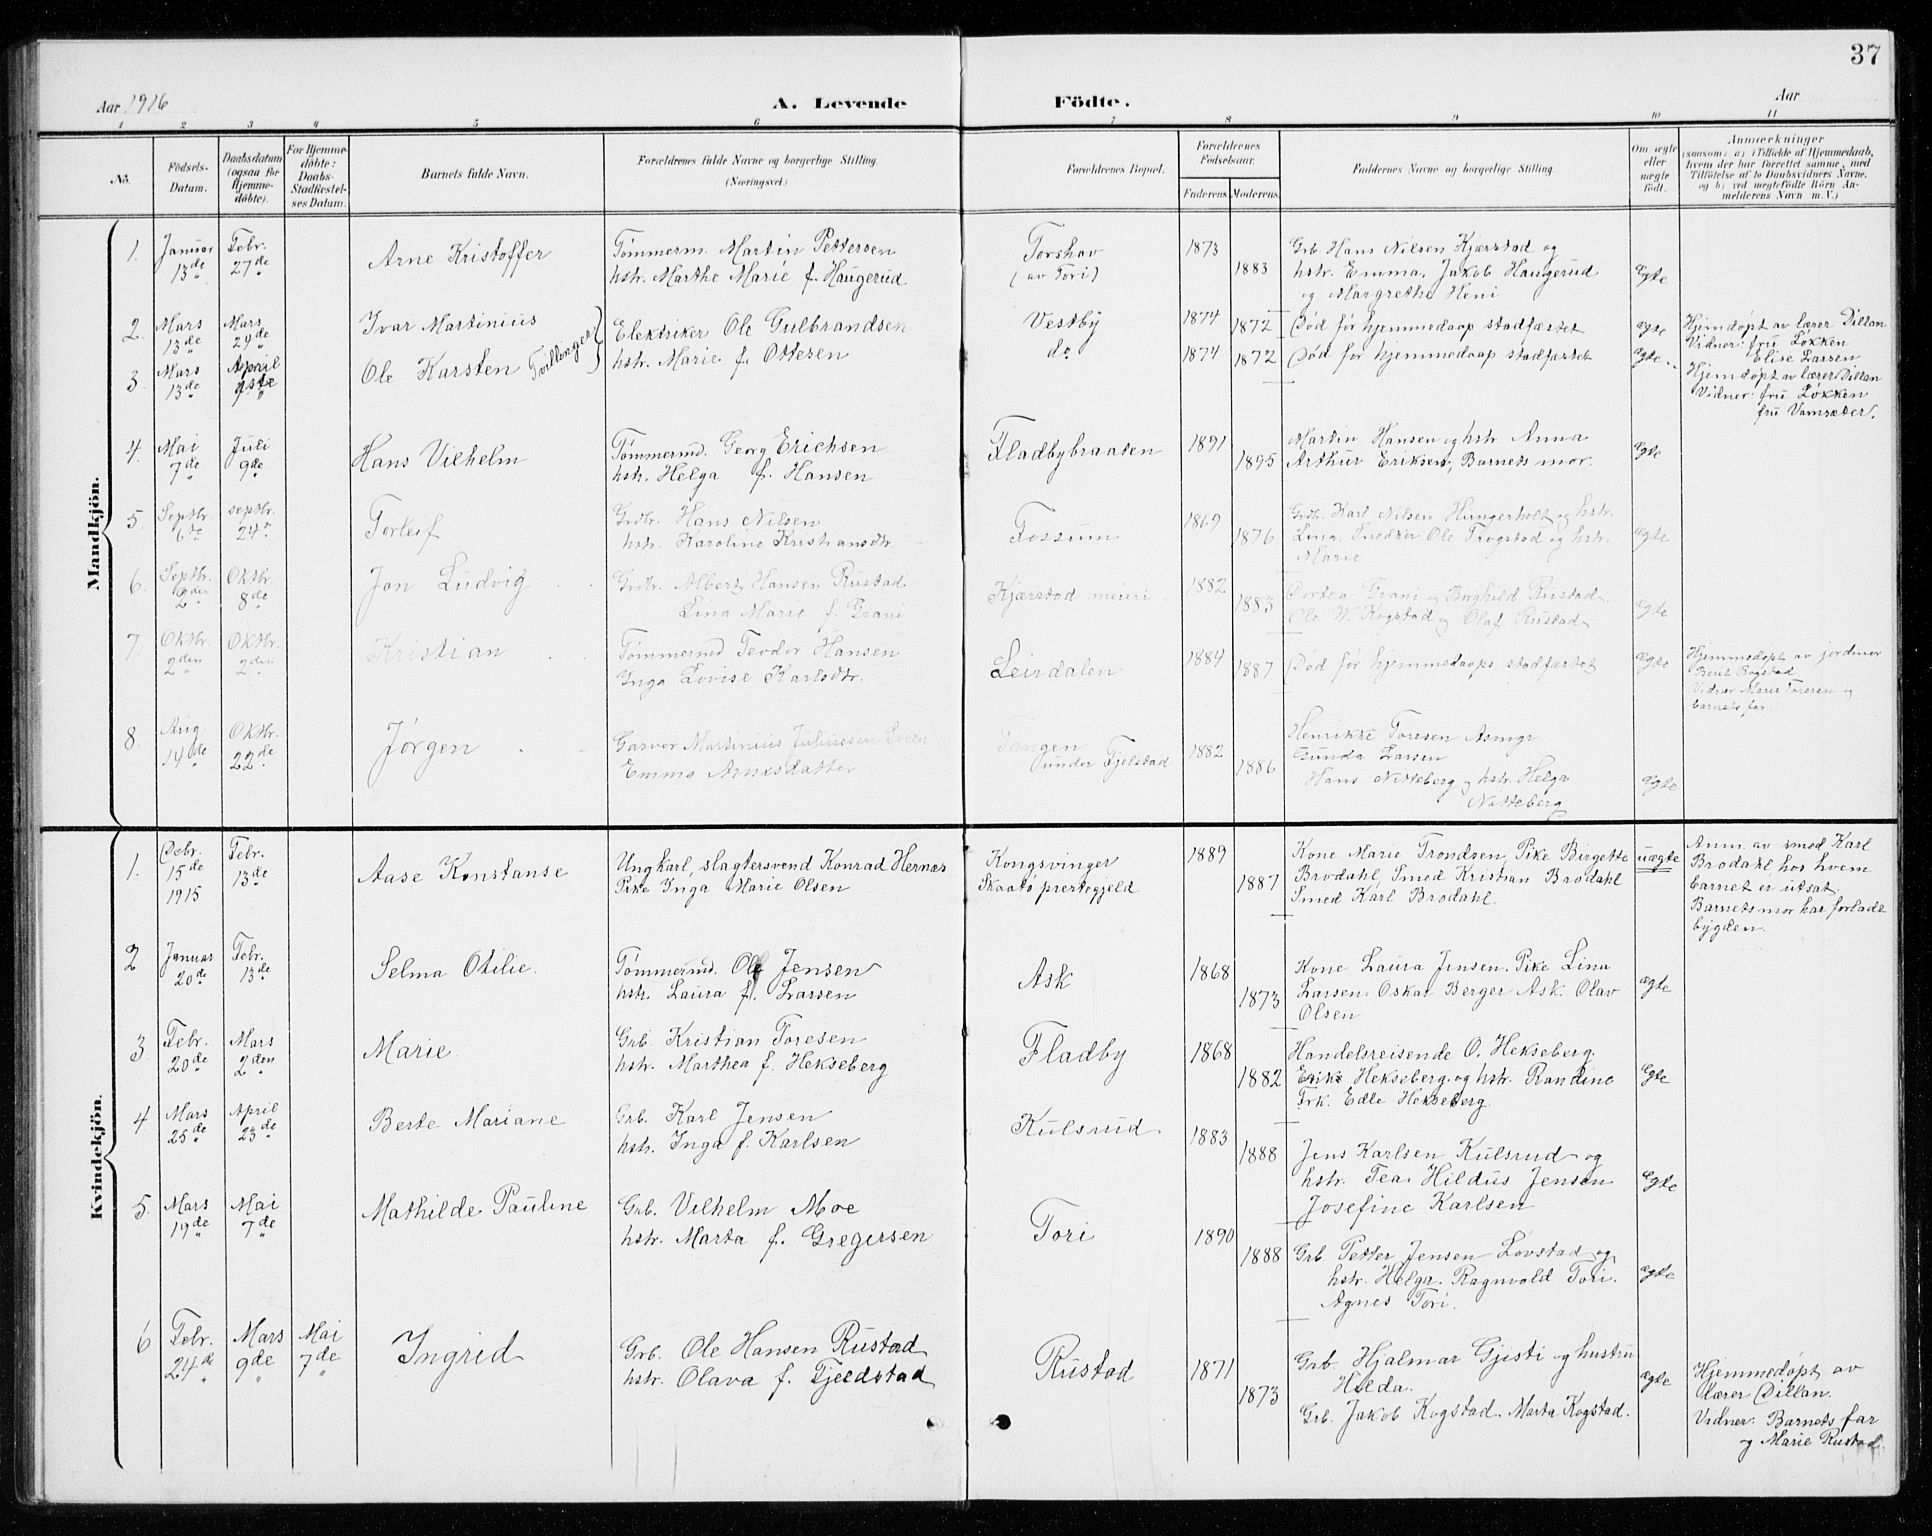 37
Aar 1916
A. Levende Födte.
Aar
1 2 3 4 5 6 7 8 9 10 11
No.
Födsels-Datum.
Daabsdatum (ogsaa for Hjemme-døbte).
For Hjemme-døbte: Daabs-Stadfæstel-ses Datum.
Barnets fulde Navn.
Forældrenes fulde Navne og borgerlige Stilling. (Næringsvei.)
Forældrenes Bopæl.
Forældrenes Födselsaar.
Faderens.
Moderens.
Faddernes Navne og borgerlige Stilling.
Om ægte eller uægte født.
Anmærkninger
(saasom: a) i Tilfælde af Hjemmedaab, hvem der har forrettet samme, med Tilföielse af to Daabsvidners Navne, og b) ved uegtefödte Börn An-melderens Navn m. V.)
Mandkjön.
1. Januar 13de Febr. 27de
Arne Kristoffer
Tømmerm. Martin Pettersen
hstr. Marthe Marie f. Haugerud
Torshov
(av Tori)
1873 1883
Grb Hans Nilsen Kjærstad og
hstr. Emma. Jakob Haugerud
og Margrethe Heni
ægte
2. Mars 13de Mars 29de
Ivar Martinius
Tvillinger
Elektriker Ole Gulbrandsen
hstr. Marie f. Ottesen
Vestby
1874 1872
Død før hjemmedaap stadfæstet
ægte
Hjemdøpt av lærer Dillan
Vidner: fru Løkken
Elise Larsen
3. Mars 13de April 1ste
Ole Karsten
do
1874 1872
Død før hjemmedaap stadfæstet
ægte
Hjemdøpt av lærer Dillan
Vidner: fru Løkken
fru Vamsæter.
4. Mai 7de Juli 9de
Hans Vilhelm
Tømmermd. Georg Erichsen
hstr. Helga f. Hansen
Fladbybraaten
1891 1895
Martin Hansen og hstr. Anna
Arthur Eriksen, Barnets mor.
ægte
5. Septbr. 6te septbr. 24
Torleif
Grdbr. Hans Nilsen
hstr. Karoline Kristiansdtr.
Fossum
1869 1876
Grdb. Karl Nilsen Hungerholt og hstr.
Lina. Snedker Ole Trøgstad og hstr.
Marie
ægte
6. Septbr. Oktbr. 8de
Jon Ludvig
Grdbr. Albert Hansen Rustad
Lina Marie f. Grani
Kjærstad meieri
1882 1883
Dortea Grani og Borghild Rustad
Ole W. Kogstad og Olaf Rustad
ægte
7. Oktbr. 2den Oktbr. 2den
Kristian
Tømmermd Teodor Hansen
Inga Lovise Karlsdtr.
Leirdalen
1884 1887
Død før hjemmedaaps stadfæstet
ægte
Hjemmedøpt av jordmor
Berit Rogstad
Vidner Marie Toresen og
barnets far.
8. Aug. 14de Oktbr. 22de
Jørgen
Garver Martinius Juliussen Sveen
Emma Arnesdatter
Tangen
under Fjelstad
1882 1886
Henrikke Toresen Asmyr
Gunda Larsen
Hans Nitteberg og hstr. Helga
Nitteberg
ægte
Kvindekjön.
1. Debr. 15de 1915 Febr. 13de
Aase Konstanse
Ungkarl, slagtersvend Konrad Hernæs
Pike Inga Marie Olsen
Kongsvinger
Skaats prestegjeld
1889 1887
Kone Marie Trondsen, Pike Birgette
Brodahl, Smed Kristian Brodahl
Smed Karl Brodahl.
uægte
Anm. av smed Karl
Brodahl, hos hvem
barnet er utsat.
Barnets mor har forladt
bygden.
2 Januar 20de Febr. 13de
Selma Otilie.
Tømmermd. Ole Jensen
hstr. Laura f. Larsen
Ask
1868 1873
Kone Laura Jensen. Pike Lina
Larsen. Oskar Berger Ask. Olav
Olsen
ægte
3. Febr. 20de Mars 2den
Marie.
Grb. Kristian Toresen
hstr. Marthea f. Hekseberg
Fladby
1868 1882
Handelsreisende O. Hekseberg.
Erik Hekseberg og hstr. Randine
Frk. Edle Hekseberg.
Egte
4 Mars 25de April 23de
Berte Mariane
Grb. Karl Jensen
hstr. Inga f. Karlsen
Kulsrud
1883 1888
Jens Karlsen Kulsrud og
hstr. Tea. Hildus Jensen
Josefine Karlsen
Egte
5. Mars 19de Mai 7de
Mathilde Pauline
Grb. Vilhelm Moe
hstr. Marta f. Gregersen
Tori
1890 1888
Grb. Petter Jensen Lovstad og
hstr. Helga. Ragnvald Tori.
Agnes Tori.
ægte
6 Febr. 24de Mars 9de Mai 7de
Ingrid
Grb. Ole Hansen Rustad
hstr. Olava f. Fjeldstad
Rustad
1871 1873
Grb. Hjalmar Gjisti og hustru
Hilda.
Grb. Jakob Kogstad. Marta Kogstad.
ægte
Hjemmedøpt av
lærer Dillan.
Vidner: Barnets far
og Marie Rustad.